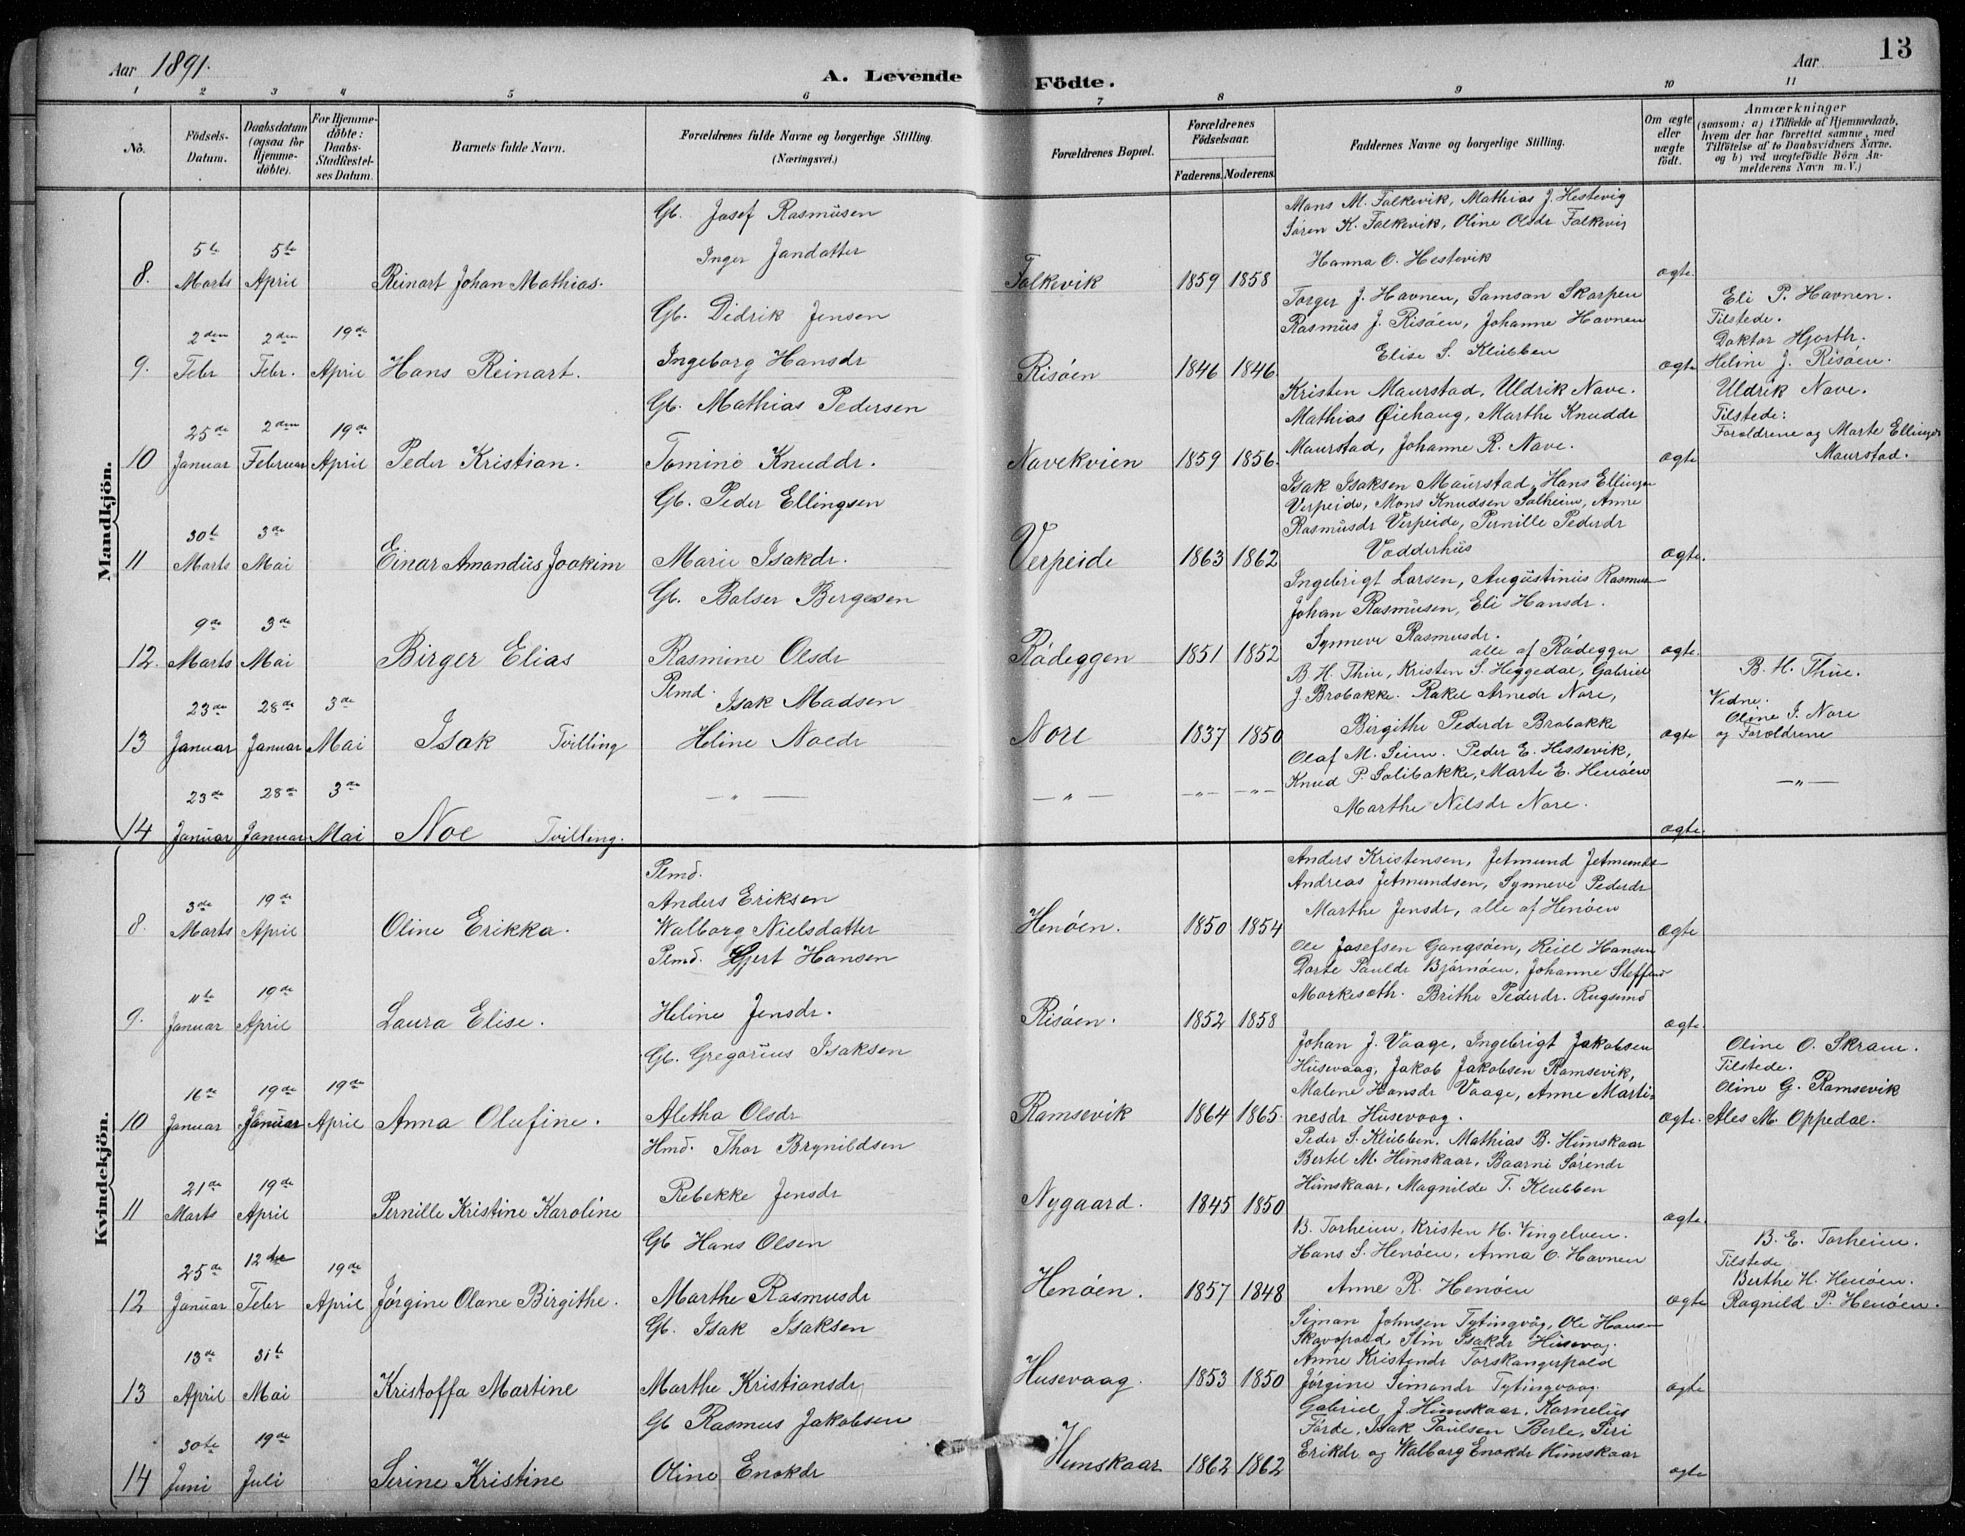 Aar 1891.
A. Levende Födte.
Aar
13
1 2 3 4 5 6 7 8 9 10 11
Nó.
Födsels-Datum.
Daabsdatum (ogsaa for Hjemmedöbte).
For Hjemmedöbte: Daabs-Stadfæstelses Datum.
Barnets fulde Navn.
Forældrenes fulde Navne og borgerlige Stilling. (Næringsvei.)
Forældrenes Bopæl.
Forældrenes Födselsaar. Faderens. Moderens.
Faddernes Navne og borgerlige Stilling.
Om ægte eller uægte födt.
Anmærkninger (saasom: a) i Tilfælde af Hjemmedaab, hvem der har forrettet samme, med Tilföielse af to Daabsvidners Navne, og b) ved uægtefödte Börn Anmelderens Navn m.V.)
Mandkjön.
8. 5te Marts 5te April Reinart Johan Mathias.
Gb. Josef Rasmusen
Inger Jandatter
Falkevik 1859 1858
Mons M. Falkevik, Mathias J. Hestevig
Søren K. Falkevik, Oline Olsdr Falkevig
Hanna O. Hestevik
ægte.
9. 2den Febr 2den Febr. 19de April Hans Reinart.
Gb. Didrik Jensen
Ingeborg Hansdr
Risøen 1846 1846.
Torger J. Havnen, Samson Skarpen
Rasmus J. Risøen, Johanne Havnen
Elise S. Klubben
ægte
Eli P. Havnen.
Tilstede.
Doktor Hjorth.
Heline J. Risøen.
10 25de Januar 2den Februar 19de April Peder Kristian.
Gb. Mathias Pedersen
Tomine Knuddr.
Navekvien 1859 1856.
Kristen Maurstad, Uldrik Nave.
Mathias Øiehaug, Marthe Knuddr
Maurstad, Johanne R. Nave.
ægte
Uldrik Nave.
Tilstede:
Forældrene og Marte Ellingsdr
Maurstad.
11 30te Marts 3de Mai Einar Amandus Joakim
Gb. Peder Ellingsen
Marie Isakdr.
Verpeide 1863 1862
Isak Isaksen Maurstad, Hans Ellingsen
Verpeide, Mons Knudsen Solheim, Anne
Rasmusdr Verpeide, Pernille Pederdr
Vadderhus
ægte.
12. 9de Marts 3de Mai Birger Elias
Gb. Balser Børgesen
Rasmine Olsdr
Rødeggen 1851 1852
Ingebrigt Larsen, Augustinus Rasmus-
Johan Rasmusen, Eli Hansdr.
Synneve Rasmusdr.
alle af Rødeggen
ægte.
13 23de Januar 28de Januar 3de Mai Isak Tvilling
Plmd. Isak Madsen
Heline Noedr
Nore 1837 1850
B. H. Thue, Kristen S. Heggedal, Gabriel
J. Brobakke. Rakel Arnedr Nore,
Birgithe Pederdr Brobakke
ægte
B. H. Thue.
Vidne.
Oline I. Nore
og Forældrene
14 23de Januar 28de Januar 3de Mai Noe Tvilling.
— „ — — „ — — „ — — „ —
Olaf M. Seim. Peder E. Hessevik,
Knud P. Solibakke, Marte E. Henøen
Marthe Nilsdr Nore.
ægte.
— „ —
Kvindekjön.
8. 3de Marts 19de April Oline Erikka.
Plmd.
Anders Eriksen
Walborg Nielsdatter
Henøen. 1850 1854
Anders Kristensen, Jetmund Jetmunds-
Andreas Jetmundsen, Synneve Pederdr
Marthe Jensdr, alle af Henøen
ægte
9. 11te Januar 19de April Laura Elise.
Plmd. Gjert Hansen
Heline Jensdr.
Risøen. 1852 1858
Ole Josefsen Gangsøen, Reiel Hansen
Dorte Pauldr Bjørnøen, Johanne Steffens-
Morkeseth. Brithe Pederdr. Rugsund
ægte.
10 16de Januar 19de Januar 19de April Anna Olufine.
Gb. Gregorius Isaksen
Aletha Olsdr
Ramsevik 1864 1865.
Johan J. Vaage, Ingebrigt Jakobsen
Husevaag, Jakob Jakobsen Ramsevik,
Malene Hansdr Vaage, Anne Marti-
nesdr Husevaag.
ægte.
Oline O. Skram.
Tilstede.
Oline G. Ramsevik
Ales M. Oppedal.
11 21de Marts 19de April Pernille Kristine Karoline
Hmd. Thor Brynildsen
Rebekke Jensdr
Nygaard. 1845 1850
Peder S. Klubben. Mathias B. Humskaar
Bertel M. Humskaar, Baarni Sørendr
Humskaar, Magnilde T. Klubben
ægte.
12 25de Januar 12te Febr 19de April Jørgine Olane Birgithe.
Gb Hans Olsen
Marthe Rasmusdr
Henøen. 1857 1848
B. Torheim, Kristen H. Vingelven.
Hans S. Henøen, Anna O. Havnen
Anne R. Henøen
ægte
B. E. Torheim.
Tilstede
Berthe H. Henøen.
Ragnild P. Henøen.
13 13de April 31te Mai Kristoffa Martine
Gb. Isak Isaksen
Marthe Kristiansdr
Husevaag. 1853 1850
Siman Johnsen Tytingvåg, Ole Hans-
Skavøpold, Stin Isakdr Husevag.
Anne Kristendr Torskangerpold
Jørgine Simondr Tytingvaag.
ægte
14 30te Juni 19de Juli Serine Kristine
Gb Rasmus Jakobsen
Oline Enokdr
Humskaar 1862 1862
Gabriel J. Humskaar, Kornelius
Førde, Isak Paulsen Berle, Siri
Erikdr og Walborg Enokdr Humskaar
ægte